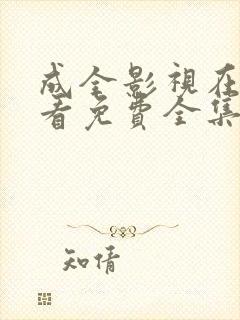 成全影視在
看免費全集
知情